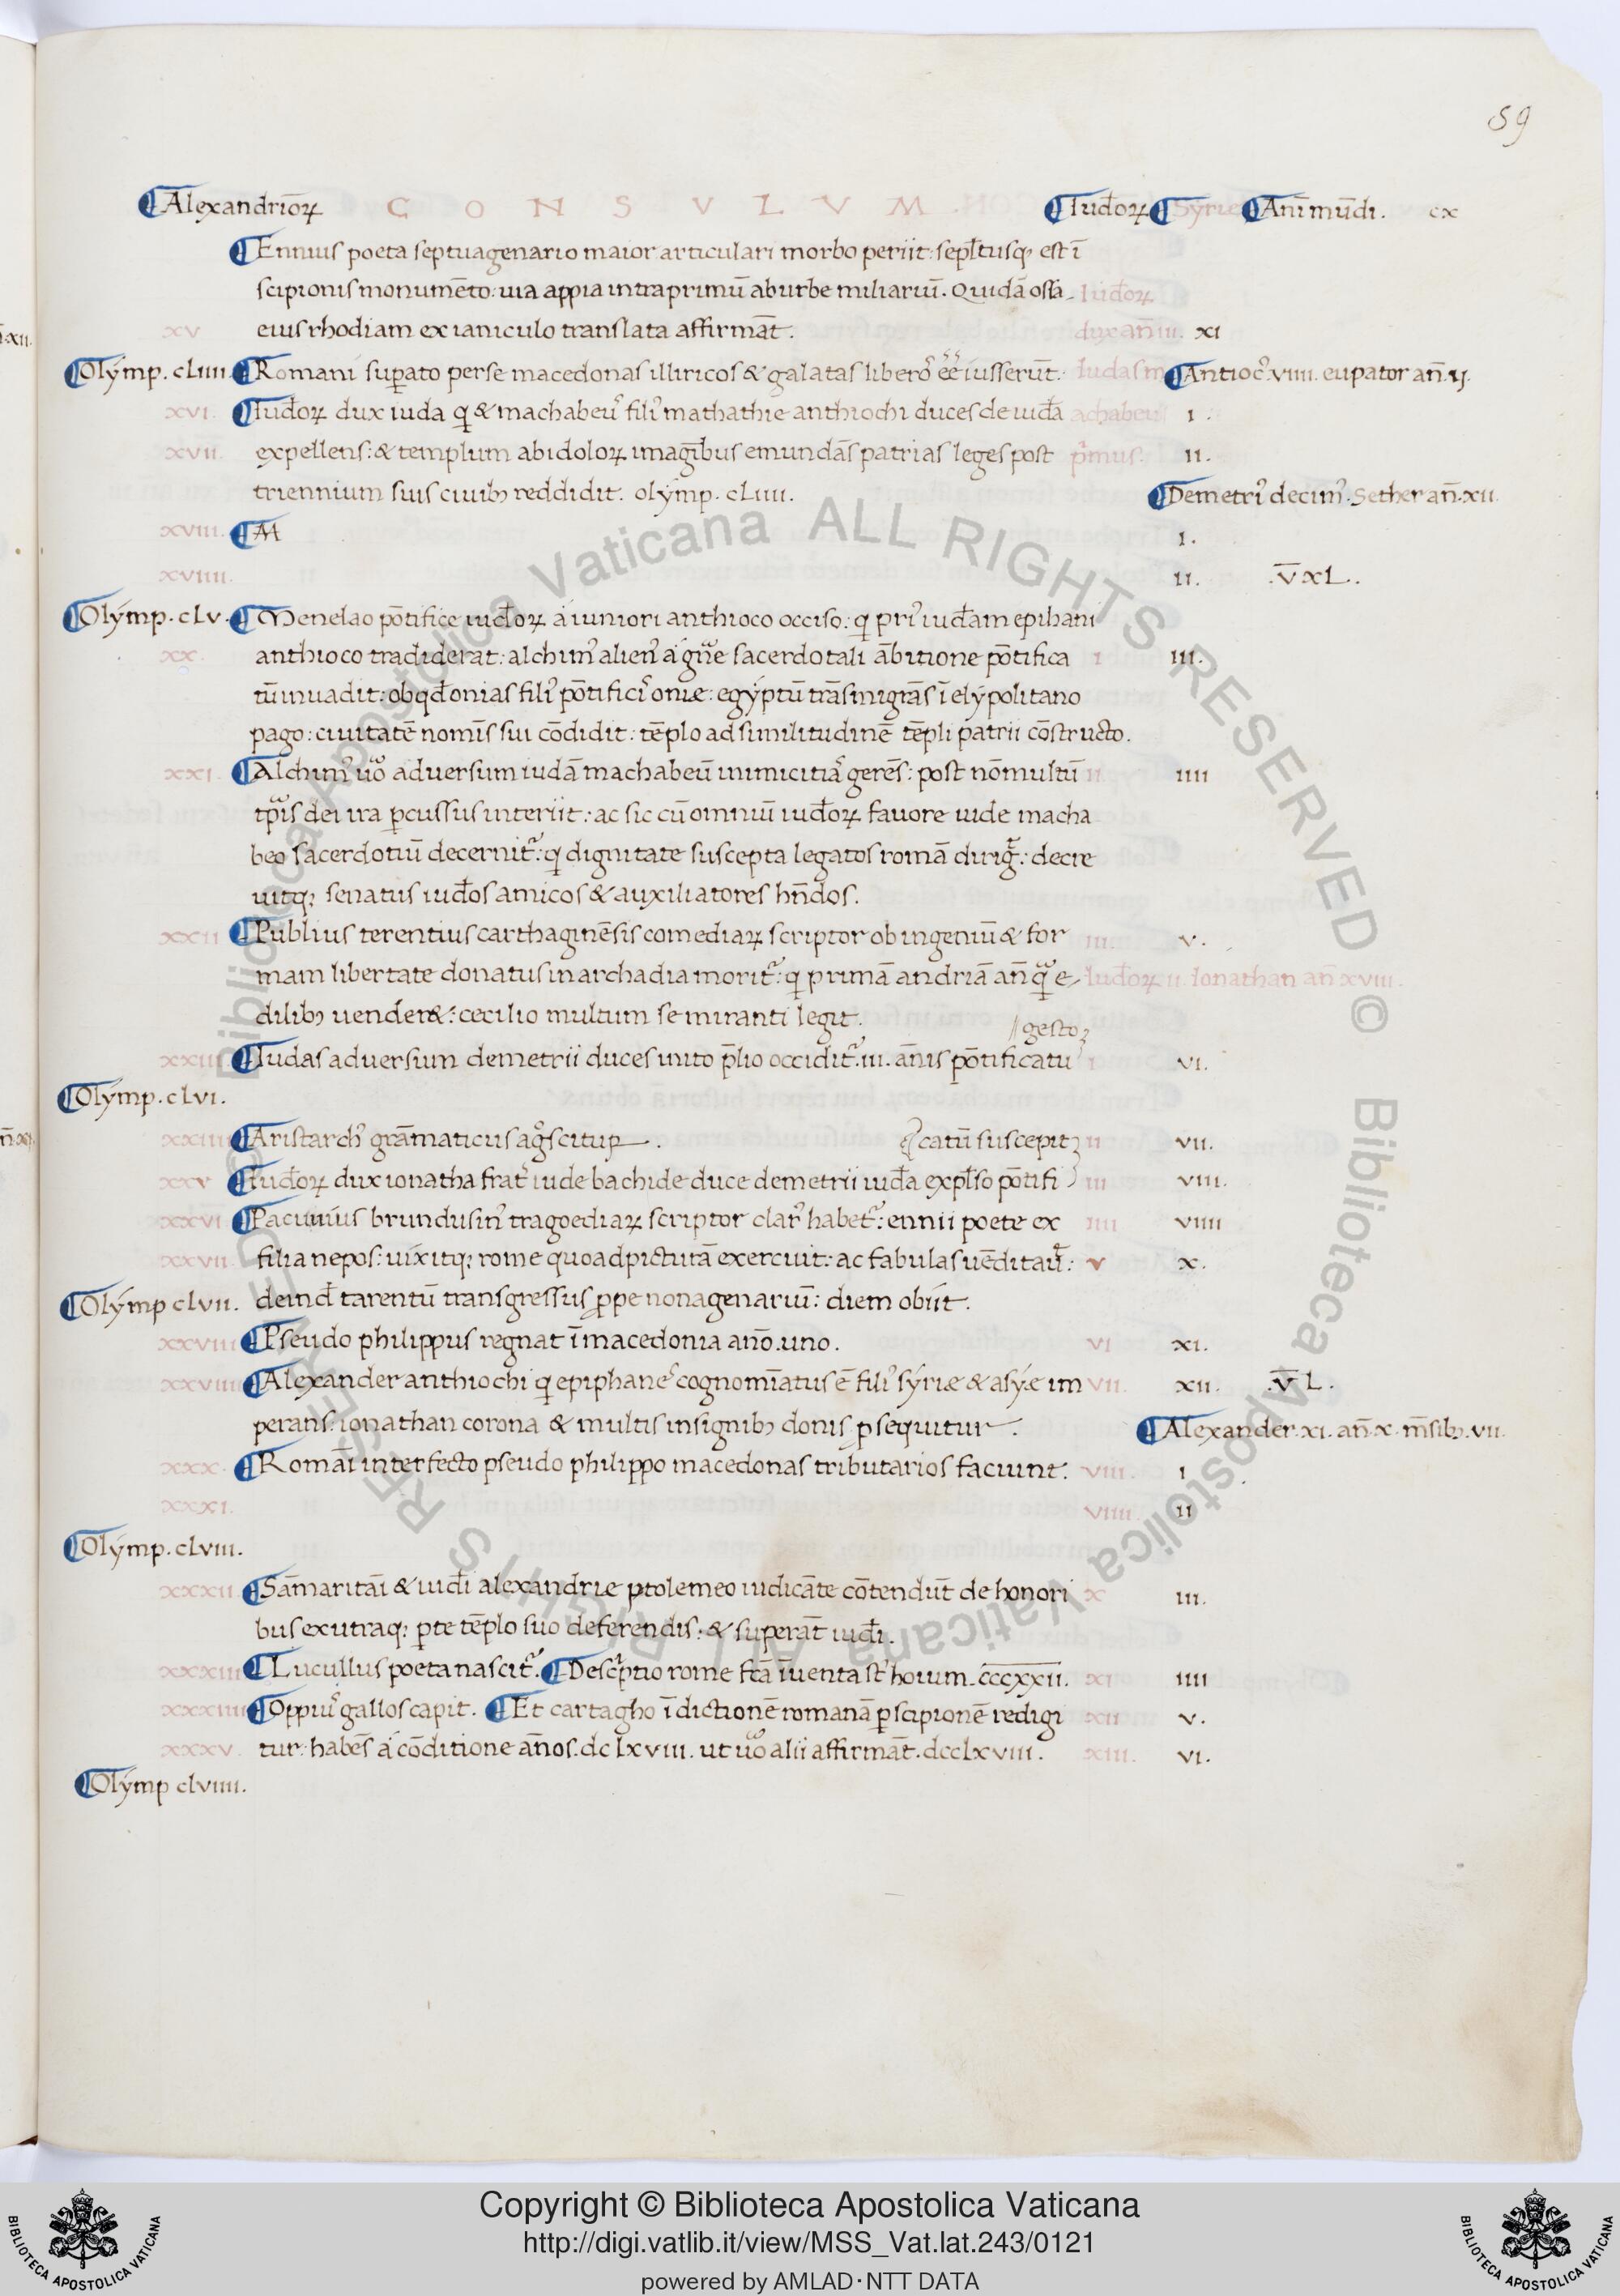 59
¶Alexandrioꝝ C O N S V L V M ¶Iud̄oꝝ ¶Syrie ¶Ani mūdi. cx
¶Ennius poeta septuagenario maior articulari morbo periit: sepl̄tusqꝫ est ī
scipionis monumēto: uia appia intra primū ab urbe miliariū. Quidā ossa Iud̄oꝝ
xv eius rhodiam ex ianiculo translata affirmāt. dux an̄ iii. xi
¶Olýmp. cLiiii. ¶Romani suꝑato perse macedonas illiricos & galatas liberoˀ ēē iusserūt. Iudas m ¶Antiocˀ. viiii. eupator an̄. ij.
xvi. ¶Iud̄oꝝ dux iuda q̄ & machabeuˀ filiˀ mathathie anthiochi duces de iud̄a achabeus i.
xvii. expellens: & templum ab idoloꝝ imagībus emundās patrias leges post pˀmus. ii.
triennium suis ciuibꝫ reddidit. olýmp. cLiiii. ¶Demetriˀ decimˀ. Sether an̄. xii.
xviii. ¶M i.
xviiii. ii. .v̄xL.
¶Olýmp. cLv. ¶Menelao pōtifice iud̄oꝝ a iuniori anthioco occiso: q̄ priˀ iud̄am epihani
xx. anthioco tradiderat: alchimˀ alienˀ á gn̄e sacerdotali ābitione pōtifica i iii.
tū inuadit: ob qd̄ onias filiˀ pōtificiˀ onie: egýptū trāsmigrās ī elýpolitano
pago: ciuitatē nomīs sui cōdidit: tēplo ad similitudinē tēpli patrii cōstructo.
xxi. ¶Alchimˀ uo̅ aduersum iudā machabeū inimicitiaˀ gerēs: post nō multū ii iiii
tp̄is dei ira ꝑcussus interiit: ac sic cū omniū iud̄oꝝ fauore iude macha
beo sacerdotiū decernitˀ: q̄ dignitate suscepta legatos romā dirigˀ: decre
uitqꝫ senatus iud̄os amicos & auxiliatores hn̄dos.
xxii ¶Publius terentius carthaginēsis comediaꝝ scriptor ob ingeniū & for iii. v.
mam libertate donatus in archadia moritˀ: q̄ primā andriā an̄q̄ e- Iud̄oꝝ ii. Ionathan an̄ xviii.
dilibꝫ uender&: cecilio multum se miranti legit.
//gesto
xxiii ¶Iudas aduersum demetrii duces inito p̄lio occiditˀ. iii. an̄is pōtificatu i vi.
¶Olýmp. cLvi.
xxiiii ¶Aristarchˀ grāmaticus agˀscitur. catū suscepit ii vii.
xxv ¶Iud̄oꝝ dux ionatha fratˀ iude bachide duce demetrii iud̄a expl̄so pōtifi iii viii.
xxvi ¶Pacuuius brundusinˀ tragoediaꝝ scriptor clarˀ habetˀ: ennii poete ex iiii viiii
xxvii filia nepos: uixitqꝫ rome quoad picturā exercuit: ac fabulas uēditauˀ: v x.
¶Olýmp cLvii. deind̄ tarentū transgressus ꝓpe nonagenariū: diem obiit.
xxviii ¶Pseudo philippus regnat ī macedonia an̄o. uno. vi xi.
xxviiii ¶Alexander anthiochi q̄ epiphaneˀ cognomīatus ē filiˀ sýriæ & asýæ im vii. xii. .v̄L.
perans: ionathan corona & multis insignibꝫ donis ꝓsequitur. ¶Alexander. xi. an̄. x. m̄sibꝫ. vii.
xxx. ¶Romāi interfecto pseudo philippo macedonas tributarios faciunt. viii. i
xxxi. viiii. ii
¶Olýmp. cLviii.
xxxii ¶Sāmaritāi & iud̄i alexandrie ptolemeo iudicāte cōtendūt de honori x iii.
bus ex utraqꝫ ꝑte tēplo suo deferendis: & superāt iud̄i.
xxxiii ¶Lucullus poeta nascitˀ. ¶Descˀptio rome fc̄a īuenta st̄ hoium. c̄c̄c̄x̄x̄īī. xi iiii
xxxiiii ¶Oppiuˀ gallos capit. ¶Et cartagho ī dictionē romanā ꝑ scipionē redigi xii v.
xxxv. tur: habēs á cōditione an̄os. dcLxviii. ut uo̅ alii affirmāt. dccLxviii. xiii. vi.
¶Olýmp cLviiii.
Biblioteca Apostolica Vaticana ALL RIGHTS RESERVED ©
Biblioteca Apostolica Vaticana ALL RIGHTS RESERVED ©
BIBLIOTECA APOSTOLICA VATICANA
Copyright © Biblioteca Apostolica Vaticana
http://digi.vatlib.it/view/MSS_Vat.lat.243/0121
powered by AMLAD·NTT DATA
BIBLIOTECA APOSTOLICA VATICANA